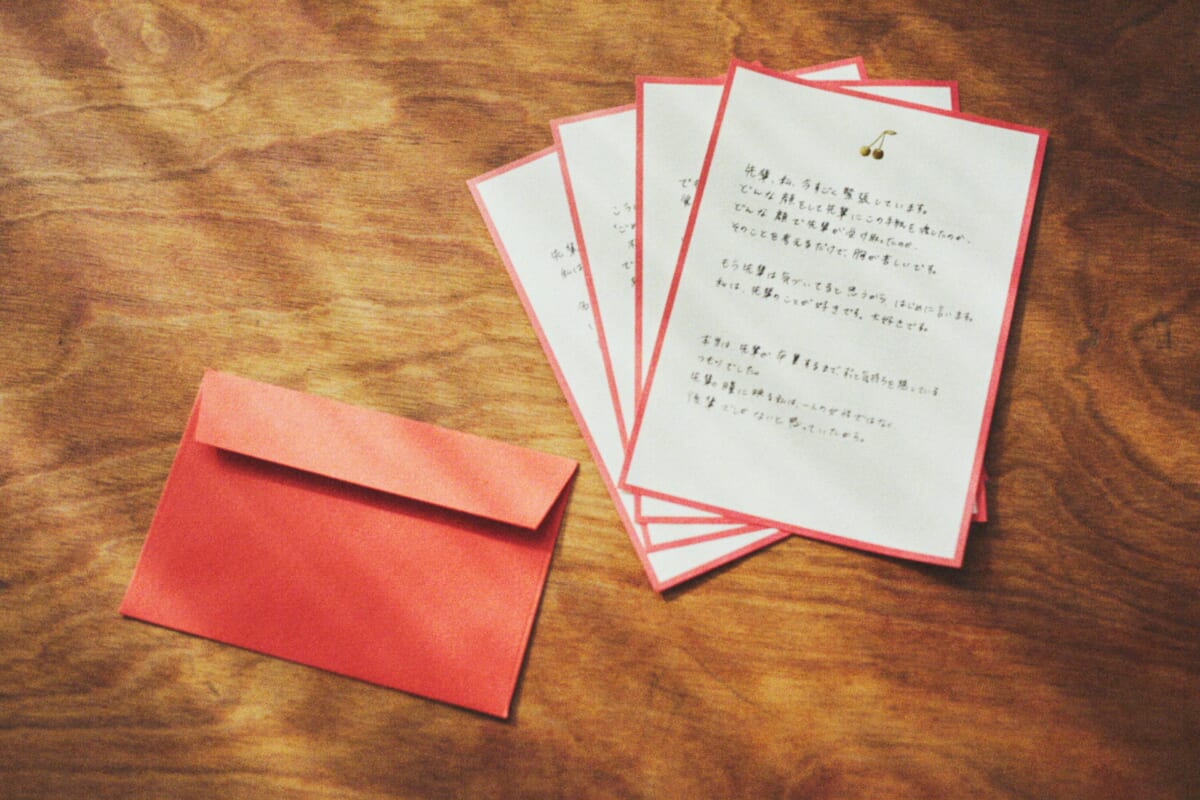 先輩、私、今すごく緊張しています。
どんな顔をして先輩にこの手紙を渡したのか、
どんな顔で先輩が受け取ったのか、
そのことを考えるだけで、胸が苦しいです。
もう先輩は気づいてると思うから、はじめに言います。
私は、先輩のことが好きです。大好きです。
本当は、先輩が卒業するまで、ずっと気持ちを隠している
つもりでした。
先輩の瞳に映る私は、一人の女性ではなく
後輩でしかないと思っていたから。
で
こう
で
先輩
私は